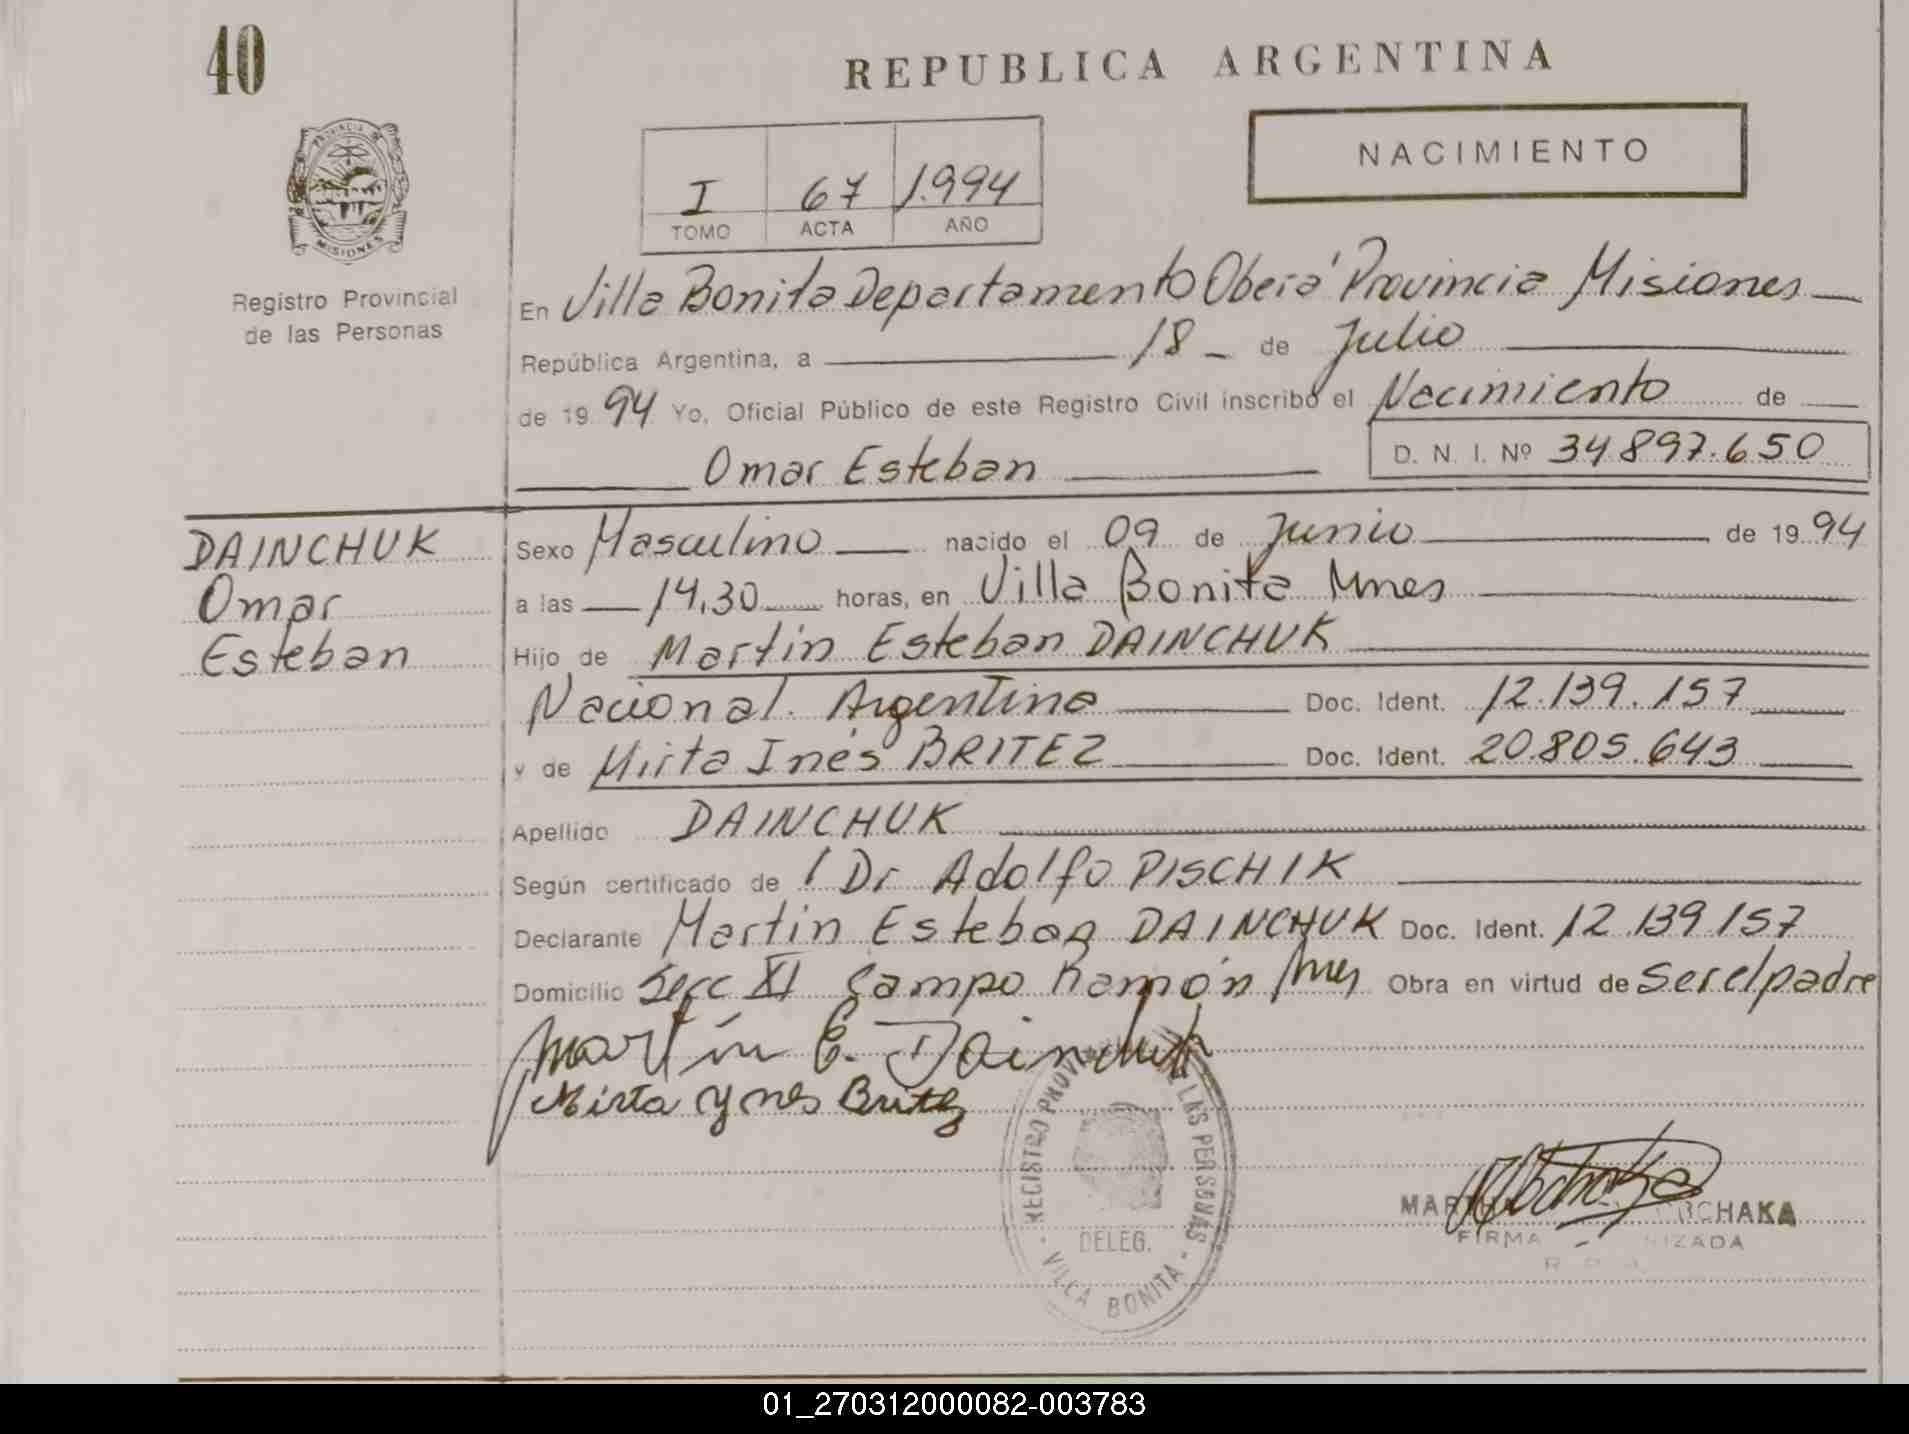 40
REPUBLICA ARGENTINA
NACIMIENTO
PROVINCIA
MISIONES
Registro Provincial
de las Personas
I 67 1.994
TOMO ACTA AÑO
En Villa Bonita Departamento Oberá Provincia Misiones
República Argentina, a 18 de Julio
de 1994 Yo, Oficial Público de este Registro Civil inscribo el Nacimiento de
Omar Esteban D. N. I. Nº 34.897.650
DAINCHUK
Omar
Esteban
Sexo Masculino nacido el 09 de Junio de 1994
a las 14,30 horas, en Villa Bonita Mnes
Hijo de Martin Esteban DAINCHUK
Nacional. Argentina Doc. Ident. 12.139.157
y de Mirta Inés BRITEZ Doc. Ident. 20.805.643
Apellido DAINCHUK
Según certificado de Dr Adolfo PISCHIK
Declarante Martin Esteban DAINCHUK Doc. Ident. 12.139.157
Domicilio Secc XI Campo Ramón Mnes Obra en virtud de Ser el padre
Martín E. Dainchuk
Mirta Ynes Britez
REGISTRO PROVINCIAL DE LAS PERSONAS
DELEG.
VILLA BONITA
FIRMA
01_270312000082-003783